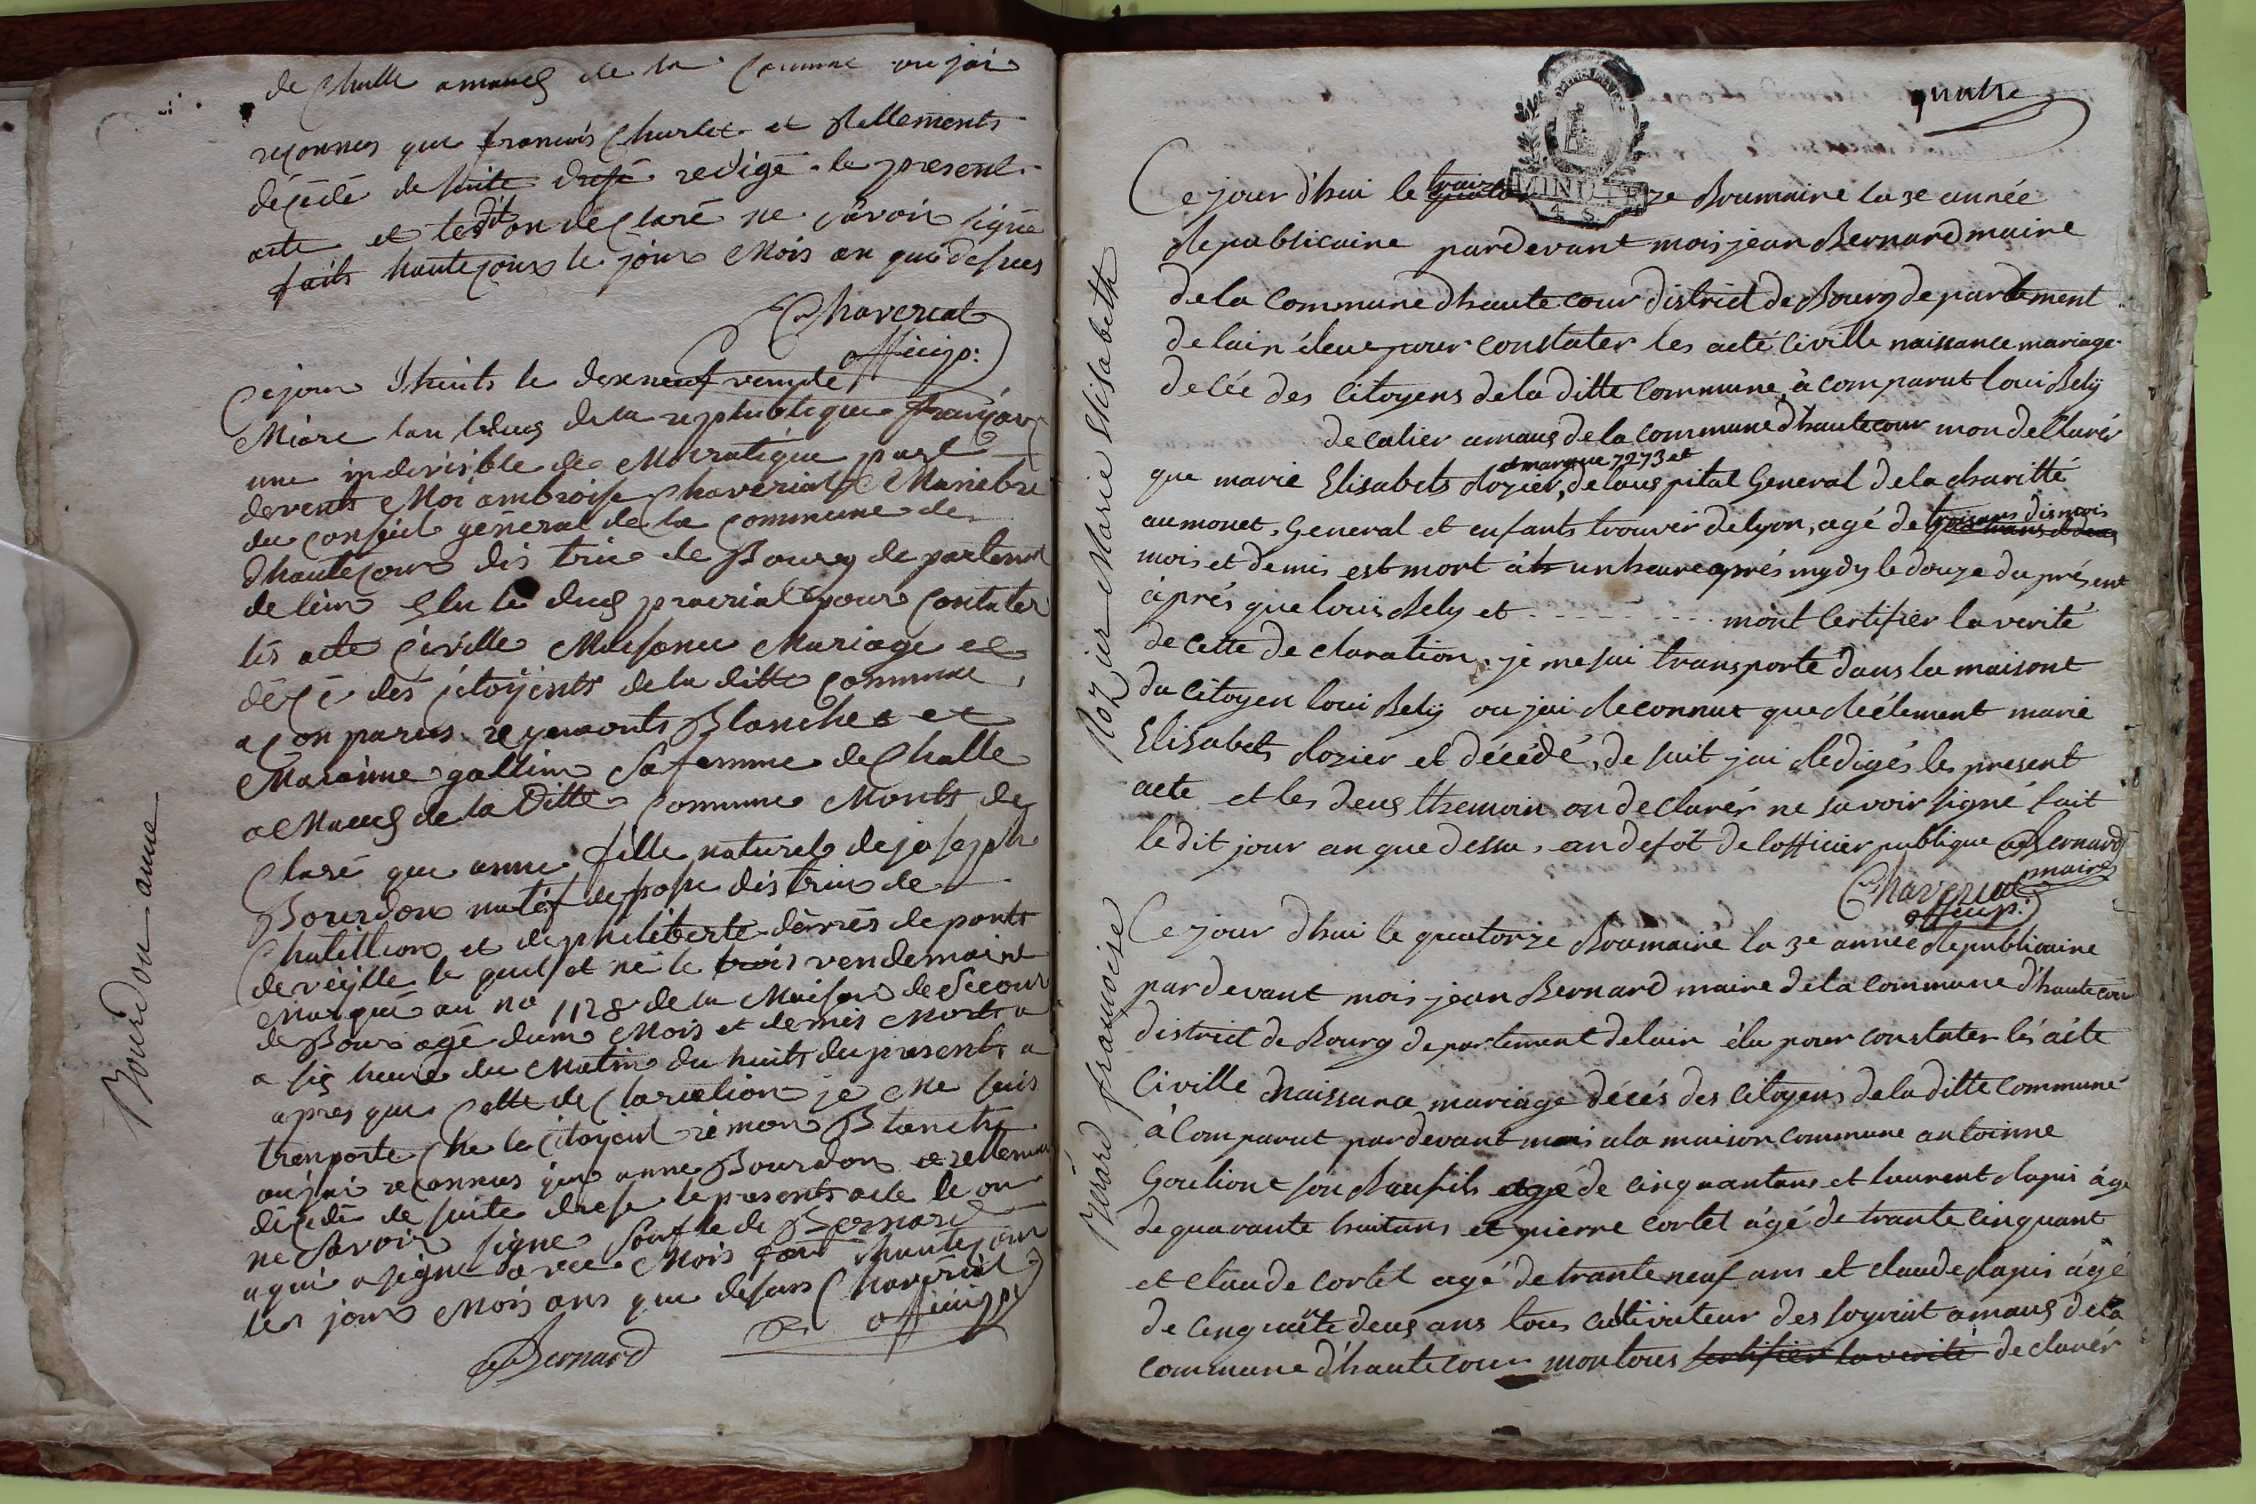 de Challe amaus de la Comune ou jai
reconnus que francois Charlet et Rellements
décédé de suite dresé redigé le present
acte et les dt on declaré ne savoir signé
faits hautecours le jours Mois an que desues
Chaveriat
officip:
Ce jour dhuits le dixneuf vende
Miare lan deus de la republique francais
une indivisible de Mocratique par
devents Moi ambroise Chaveriat Manebre
du conseil géneral de la Commune de
dhautecour dis tric de Bourg de partement
de leins Elu le deus prerial pour Contater
lés acte Civille Naisance Mariage et
décé dés Citoyents de la ditte Commune
a Con parus reymonts Blanchet et
Marainne gallin sa femme de Challe
aMaus de la Ditte Commune Monts de
Claré que anne fille naturel de joseph
Bourdon natif de distric de
Chatillion et de philiberte de ponts
de véylle le quel et né le trois vendemaire
Marqué au no 1128 de la Maison de Secour
de Bour agé dum Mois et demis Morts a
a sis heure du Matin du huits du presents a
aprés que Cette de Claration je Me suis
tranporte Che le Citoyent rémon Blanchet
ou jai reconnus que anne Bourdon et rellement
décedé de suite drese le presents acte le on
ne savoir signe de Bernard
aqui a signe avec Mois fait hautecour
les jours Mois ans que desus Chaveriat
officip:
Bernard
Bourdon anne
quatre
MINUTE
4 S
Ce jour d'hui le traize ze Brumaire la 3e année
Republicaine pardevant mois jean Bernard maire
de la Commune dhaute cour district de Bourg departement
de lain éleue pour constater les acté Civille naissance mariage
decée des Citoyens de la ditte Commune, à comparut loui Bely
de calier amaus de la Commune d'hautecour mon déclarér
que marie Elisabets Rozier, de laus pital General de la charitté
et marque 7273 et
aumonet, General et enfants trouver de lyon, agé de
troisans dismois
mois et demis est mort à un heure aprés mydy le douze du présent
àprés que louis Bely et - - - - - - - - mont Certifier la verité
de cette declaration. je me sui transporte dans la maisont
du Citoyen loui Bely ou jai Reconnut que Réélement marie
Elisabets Rozier et décédé, de suit jai Redigés les present
acte et les deus themoin on declarér ne savoir signé fait
le dit jour an que dessu, an defot de lofficier publique Bernard
maire
Chaveriat
officip:
Rozier Marie Elisabeth
Ce jour d'hui le quatorze Brumaire la 3e année Republicaine
par devant mois jean Bernard maire de la Commune d'hautecour
district de Bourg departement delain élu pour constater lés acte
Civille Naissance mariage décés des Citoyens de la ditte Commune
à Comparut pardevant mois a la maison commune antoinne
Goulion et son Baufils agé de cinquantans et laurent Rapis àgé
de quarante huitans et pierre cortet àgé de trante cinquant
et Claude cortet agé de trante neuf ans et claude Rapis àgé
de cinquate deus ans tous cultivateur des soyriat amaus de la
commune d'hautecour montous certifier la verité declarér
Berard francoise